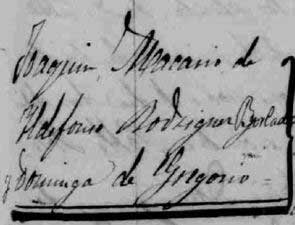 Joaquin, Macario de
Yldefonso Rodriguez Borlado
y Dominga de Gregorio